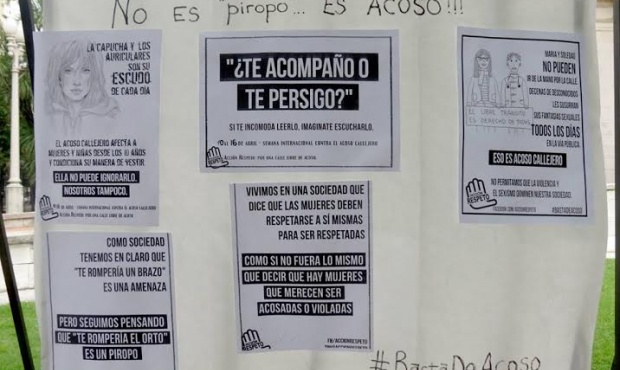 No es "piropo... es ACOSO!!!
LA CAPUCHA Y LOS
AURICULARES
SON SU
ESCUDO
DE CADA DÍA
EL ACOSO CALLEJERO AFECTA A
MUJERES Y NIÑAS DESDE LOS 10 AÑOS
Y CONDICIONA SU MANERA DE VESTIR
ELLA NO PUEDE IGNORARLO.
NOSOTROS TAMPOCO.
ACCIÓN RESPETO: POR UNA CALLE LIBRE DE ACOSO
"¿TE ACOMPAÑO O
TE PERSIGO?"
SI TE INCOMODA LEERLO, IMAGINATE ESCUCHARLO.
10 AL 16 DE ABRIL - SEMANA INTERNACIONAL CONTRA EL ACOSO CALLEJERO
ACCIÓN RESPETO: POR UNA CALLE LIBRE DE ACOSO
RESPETO
MARIA Y SOLEDAD
NO PUEDEN
IR DE LA MANO POR LA CALLE.
DECENAS DE DESCONOCIDOS
LES SUSURRAN
SUS FANTASIAS SEXUALES
TODOS LOS DÍAS
EN LA VÍA PÚBLICA.
EL LIBRE TRÁNSITO
ES DERECHO DE TODXS
ESO ES ACOSO CALLEJERO
NO PERMITAMOS QUE LA VIOLENCIA Y
EL SEXISMO DOMINEN NUESTRA SOCIEDAD.
RESPETO
#BASTADEACOSO
COMO SOCIEDAD
TENEMOS EN CLARO QUE
"TE ROMPERÍA UN BRAZO"
ES UNA AMENAZA
PERO SEGUIMOS PENSANDO
QUE "TE ROMPERÍA EL ORTO"
ES UN PIROPO
VIVIMOS EN UNA SOCIEDAD QUE
DICE QUE LAS MUJERES DEBEN
RESPETARSE A SÍ MISMAS
PARA SER RESPETADAS
COMO SI NO FUERA LO MISMO
QUE DECIR QUE HAY MUJERES
QUE MERECEN SER
ACOSADAS O VIOLADAS
RESPETO
FB/ACCIONRESPETO
#BastaDeAcoso